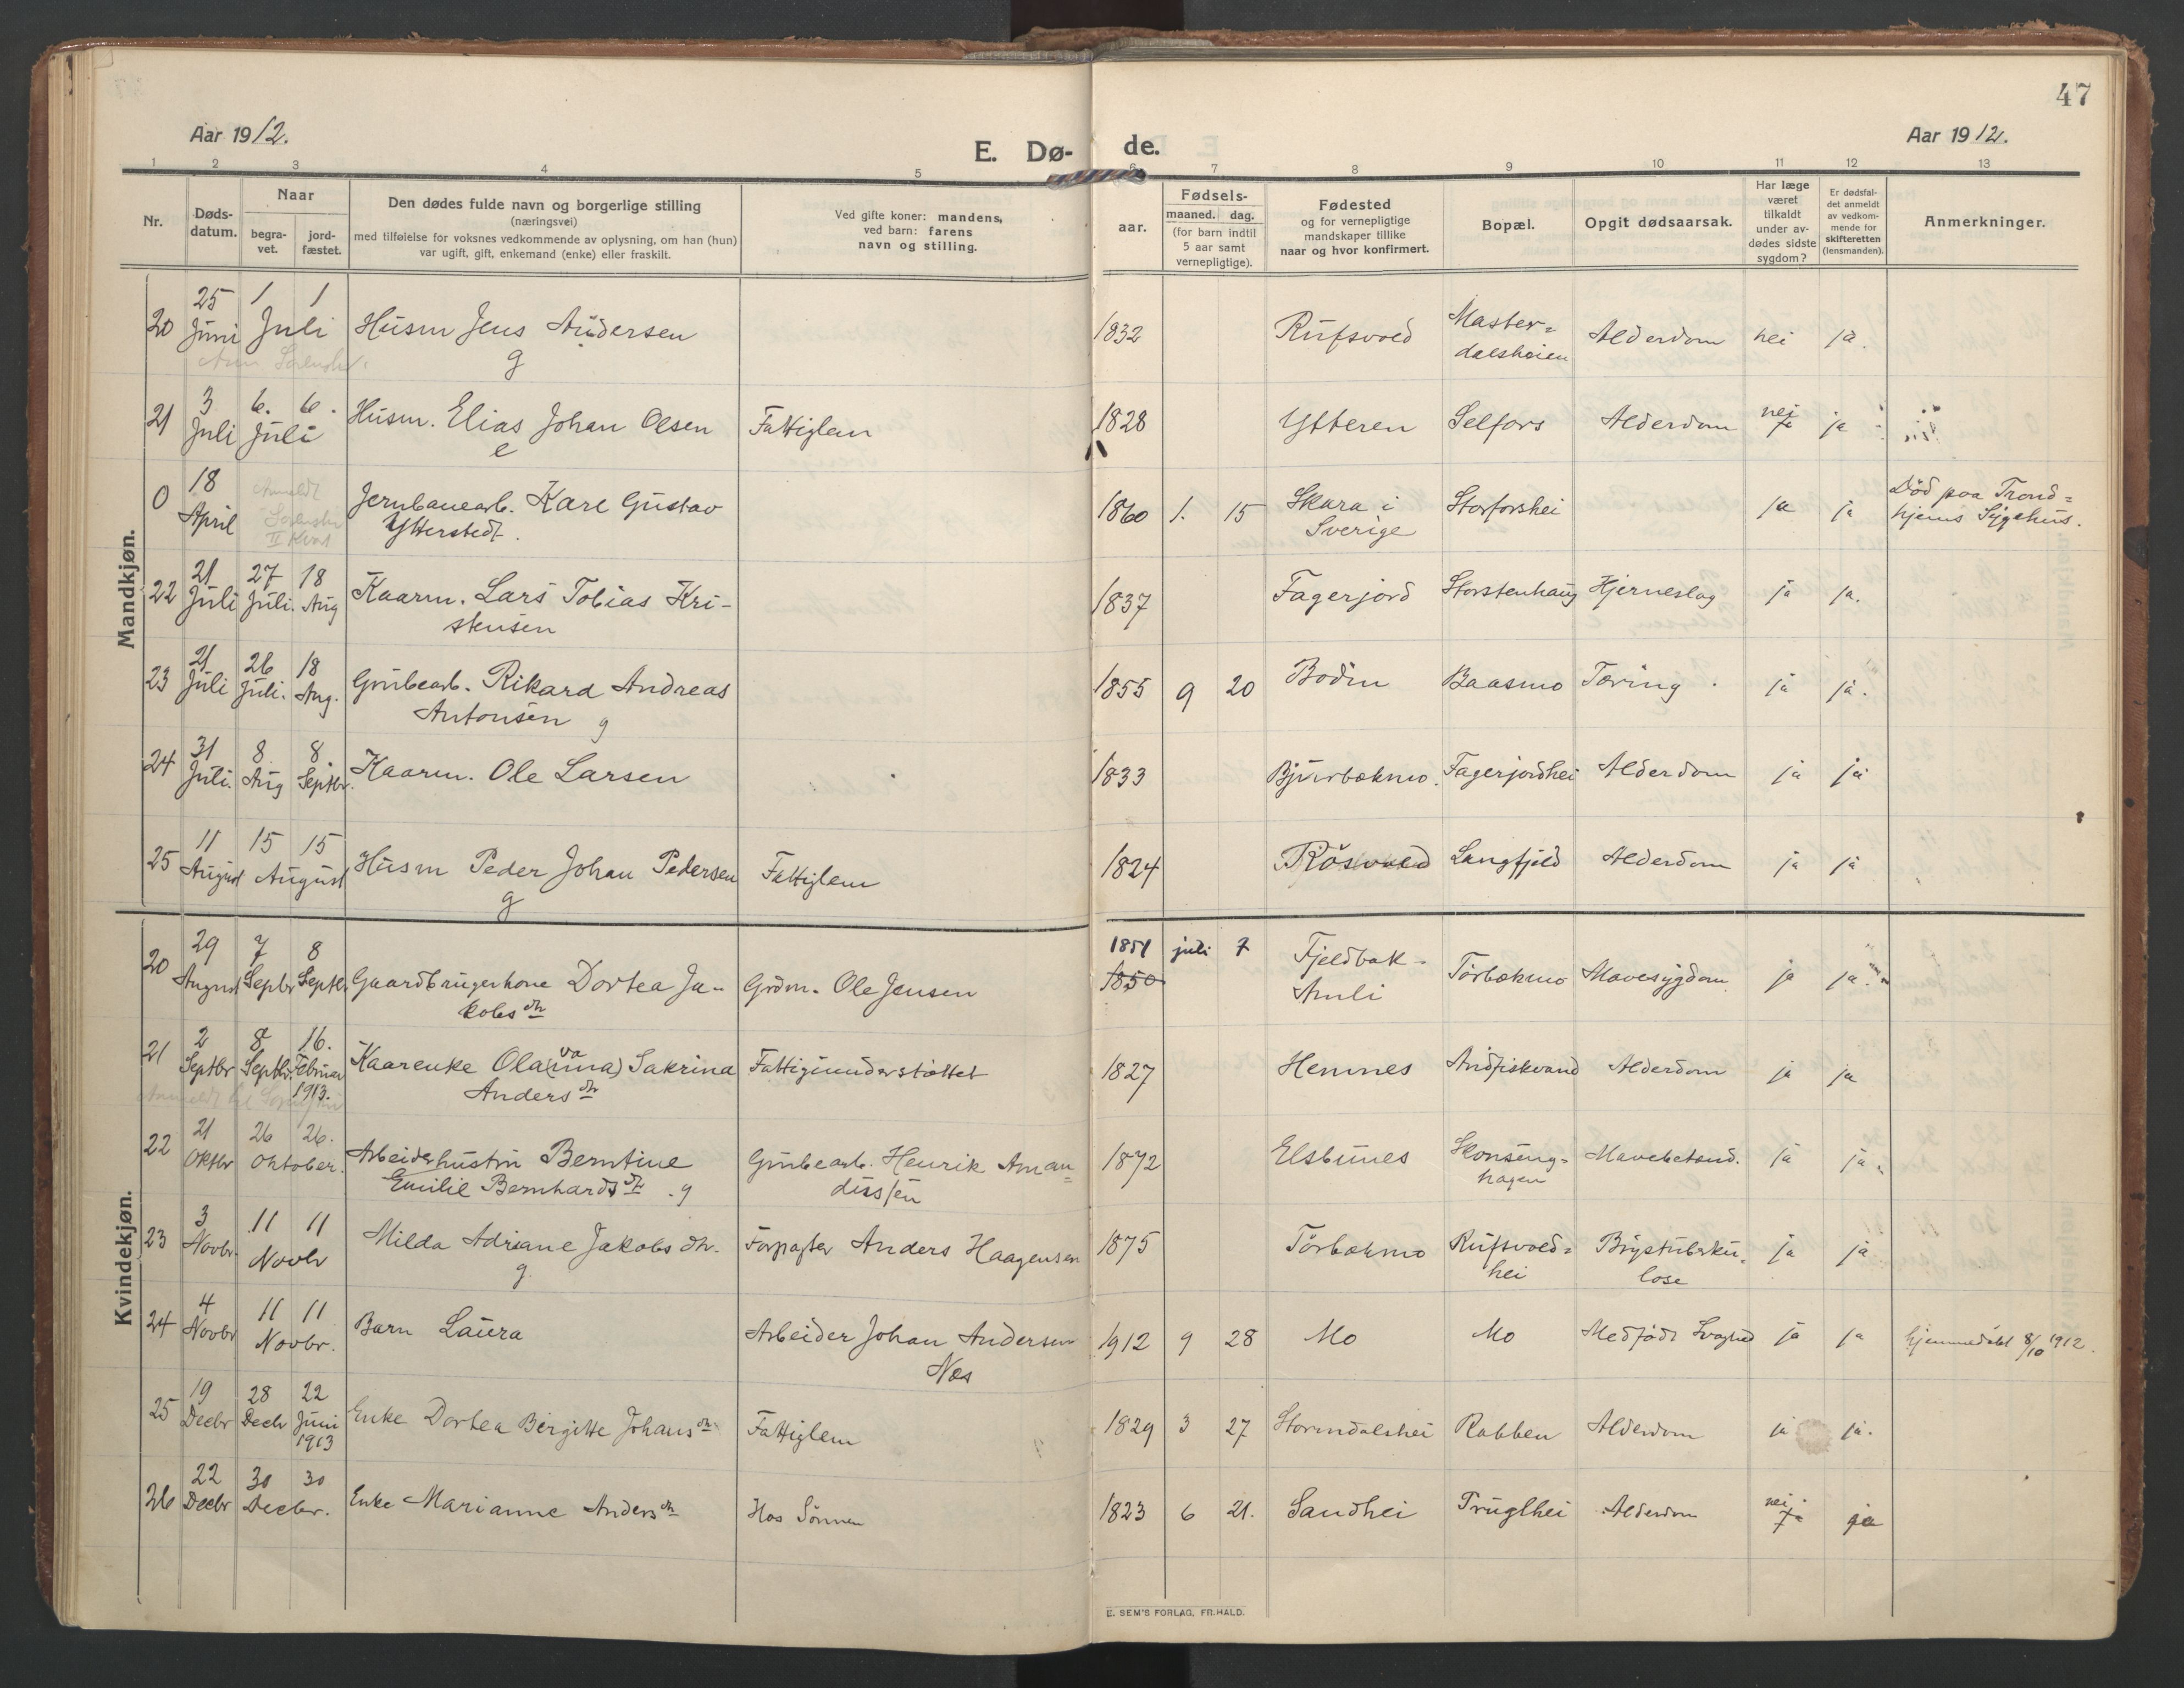 47
Aar 1912.
E. Dø-
de.
Aar 1912.
1 2 3 4 5 6 7 8 9 10 11 12 13
Nr.
Døds-
datum.
Naar
begra-
vet.
jord-
fæstet.
Den dødes fulde navn og borgerlige stilling
(næringsvei)
med tilføielse for voksnes vedkommende av oplysning, om han (hun)
var ugift, gift, enkemand (enke) eller fraskilt.
Ved gifte koner: mandens,
ved barn: farens
navn og stilling.
Fødsels-
aar.
maaned. dag.
(for barn indtil
5 aar samt
vernepligtige).
Fødested
og for vernepligtige
mandskaper tillike
naar og hvor konfirmert.
Bopæl.
Opgit dødsaarsak.
Har læge
været
tilkaldt
under av-
dødes sidste
sygdom?
Er dødsfal-
det anmeldt
av vedkom-
mende for
skifteretten
(lensmanden).
Anmerkninger.
Mandkjøn.
20 25 Juni 1 1 Juli Husm Jens Andersen 1832 Rufsvold Master=
g dalshøien Alderdom nei ja.
21 3 Juli 6. 6. Juli Husm. Elias Johan Olsen Fattiglem 1828 Ytteren Selfors Alderdom nei ja
e
0 18 April Anmeldt Jernbanearb. Karl Gustav 1860 1. 15 Skara i Storforshei ja ja Död paa Trond=
II Kvart Ytterstedt. Sverige hjems Sygehus.
22 21 Juli 27 Juli. 18 Aug Kaarm. Lars Tobias Kri- 1837 Fagerjord Storstenhaug Hjerneslag ja ja.
stensen
23 21 Juli 26 Juli. 18 Aug. Grubearb. Rikard Andreas 1855 9 20 Bodin Baasmo Tæring ja ja.
Antonsen g
24 31 Juli. 8 Aug 8. Septbr. Kaarm. Ole Larsen 1833 Bjurbækmo. Fagerjordhei Alderdom ja ja
25 11 August 15 15 August Husm Peder Johan Pedersen Fattiglem 1824 Rösvold Langfjeld Alderdom ja ja
g
Kvindekjøn.
20 29 August 7 Septbr 8 Septbr. Gaardbrugerkone Dortea Ja- Grdm. Ole Jensen 1851 juli 7 Fjeldbak- Törbækmo Mavesygdom ja ja.
kobsdtr 1850 Auli
21 2 Septbr 8 Septbr. 16. Februar 1913. Kaarenke Ola(una)va Sakrina Fattigunderstöttet 1827 Hemnes Andfiskvand Alderdom ja ja
Andersdtr
22 21 Oktbr 26 26. Oktober. Arbeiderhustru Berntine Grubearb. Henrik Aman= 1872 Elsbunes Skonseng= Mavebetænd. ja ja
Emilie Bernhardsdtr. g dissen hagen
23 3 Novbr. 11 11 Novbr Milda Adriane Jakobsdtr. Forpagter Anders Haagensen 1875 Törbækmo Rufsvold= Brysttuberku= ja ja
g. hei lose
24 4 Novbr 11 11 Novbr. Barn Laura Arbeider Johan Andersen 1912 9 28 Mo Mo Medfödt Svaghed ja ja hjemmedöbt 8/10 1912.
Næs
25 19 Decbr 28 Decbr 22 Juni 1913 Enke Dortea Birgitte Johansdtr. Fattiglem 1829 3 27 Stormdalshei Rabben Alderdom ja ja.
26 22 Decbr 30 30 Decbr. Enke Marianne Andersdtr Hos Sönnen 1823 6 21. Sandhei Truglhei Alderdom nei ja
E. SEM'S FORLAG, FR. HALD.